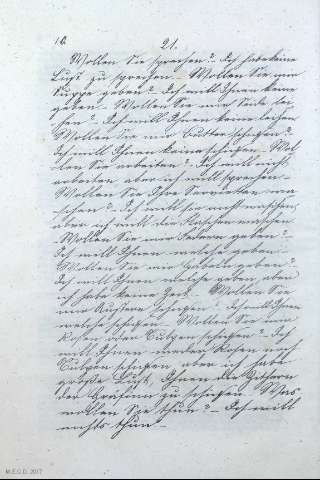 16. 21.
Wollen Sie sprechen? Ich habe keine
Lust zu sprechen. – Wollen Sie mir
Suppe geben? Ich will Ihnen keine
geben. – Wollen Sie mir Seide lei-
hen? Ich will Ihnen keine leihen
Wollen Sie mir Butter schicken?
Ich will Ihnen keine schicken. Wol-
len Sie arbeiten? Ich will nicht
arbeiten aber ich will sprechen –
Wollen Sie Ihre Servietten wa-
schen? Ich will sie nicht waschen,
aber ich will die waschen
Wollen Sie mir Federn geben?
Ich will Ihnen welche geben.
Wollen Sie mir Gabeln geben?
Ich will Ihnen welche geben aber
ich habe keine Zeit. – Wollen Sie
mir Austern schicken? Ich will Ihnen
welche schicken. Wollen Sie mir
Rosen oder Tulpen schicken? Ich
will Ihnen weder Rosen noch
Tulpen schicken aber ich habe
große Lust, Ihnen die
der Gräfin zu schicken. Was
wollen Sie thun? – Ich will
nichts thun.
M.E.C.D. 2017